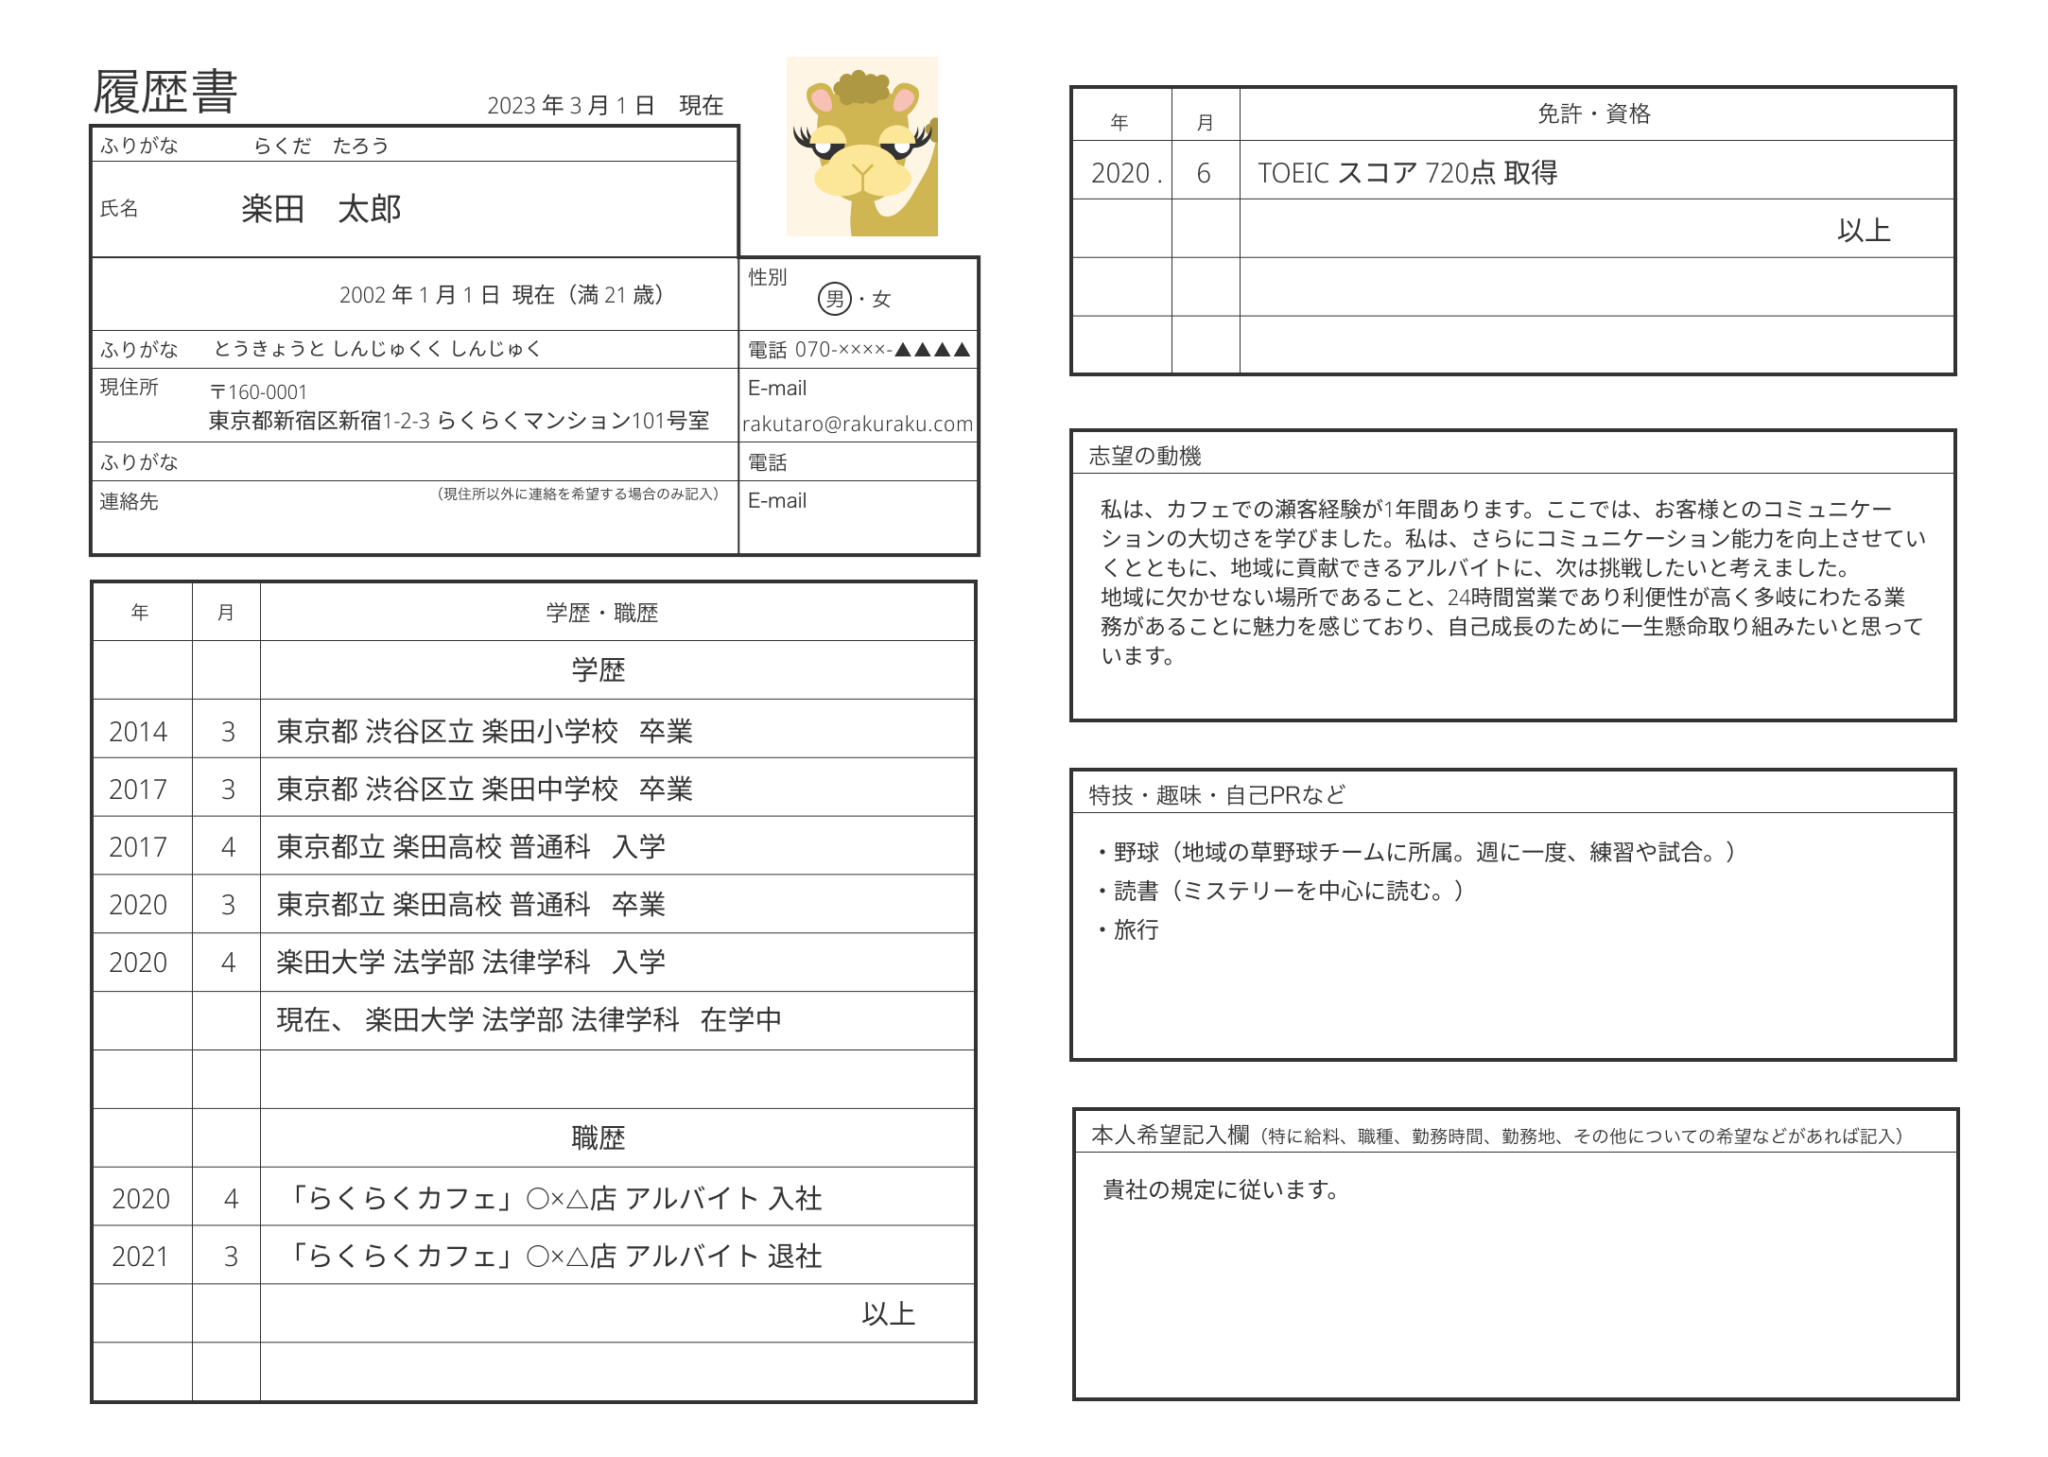 履歴書
2023 年 3 月 1 日　現在
ふりがな　らくだ　たろう
氏名　楽田　太郎
2002 年 1 月 1 日 現在（満 21 歳）
性別
男・女
ふりがな　とうきょうと しんじゅくく しんじゅく
電話 070-××××-▲▲▲▲
現住所　〒160-0001
東京都新宿区新宿1-2-3 らくらくマンション101号室
E-mail
rakutaro@rakuraku.com
ふりがな
電話
連絡先　（現住所以外に連絡を希望する場合のみ記入）
E-mail
年　月　学歴・職歴
学歴
2014　3　東京都 渋谷区立 楽田小学校　卒業
2017　3　東京都 渋谷区立 楽田中学校　卒業
2017　4　東京都立 楽田高校 普通科　入学
2020　3　東京都立 楽田高校 普通科　卒業
2020　4　楽田大学 法学部 法律学科　入学
現在、 楽田大学 法学部 法律学科　在学中
職歴
2020　4　「らくらくカフェ」○×△店 アルバイト 入社
2021　3　「らくらくカフェ」○×△店 アルバイト 退社
以上
年　月　免許・資格
2020 .　6　TOEIC スコア 720点 取得
以上
志望の動機
私は、カフェでの瀬客経験が1年間あります。ここでは、お客様とのコミュニケー
ションの大切さを学びました。私は、さらにコミュニケーション能力を向上させてい
くとともに、地域に貢献できるアルバイトに、次は挑戦したいと考えました。
地域に欠かせない場所であること、24時間営業であり利便性が高く多岐にわたる業
務があることに魅力を感じており、自己成長のために一生懸命取り組みたいと思って
います。
特技・趣味・自己PRなど
・野球（地域の草野球チームに所属。週に一度、練習や試合。）
・読書（ミステリーを中心に読む。）
・旅行
本人希望記入欄（特に給料、職種、勤務時間、勤務地、その他についての希望などがあれば記入）
貴社の規定に従います。